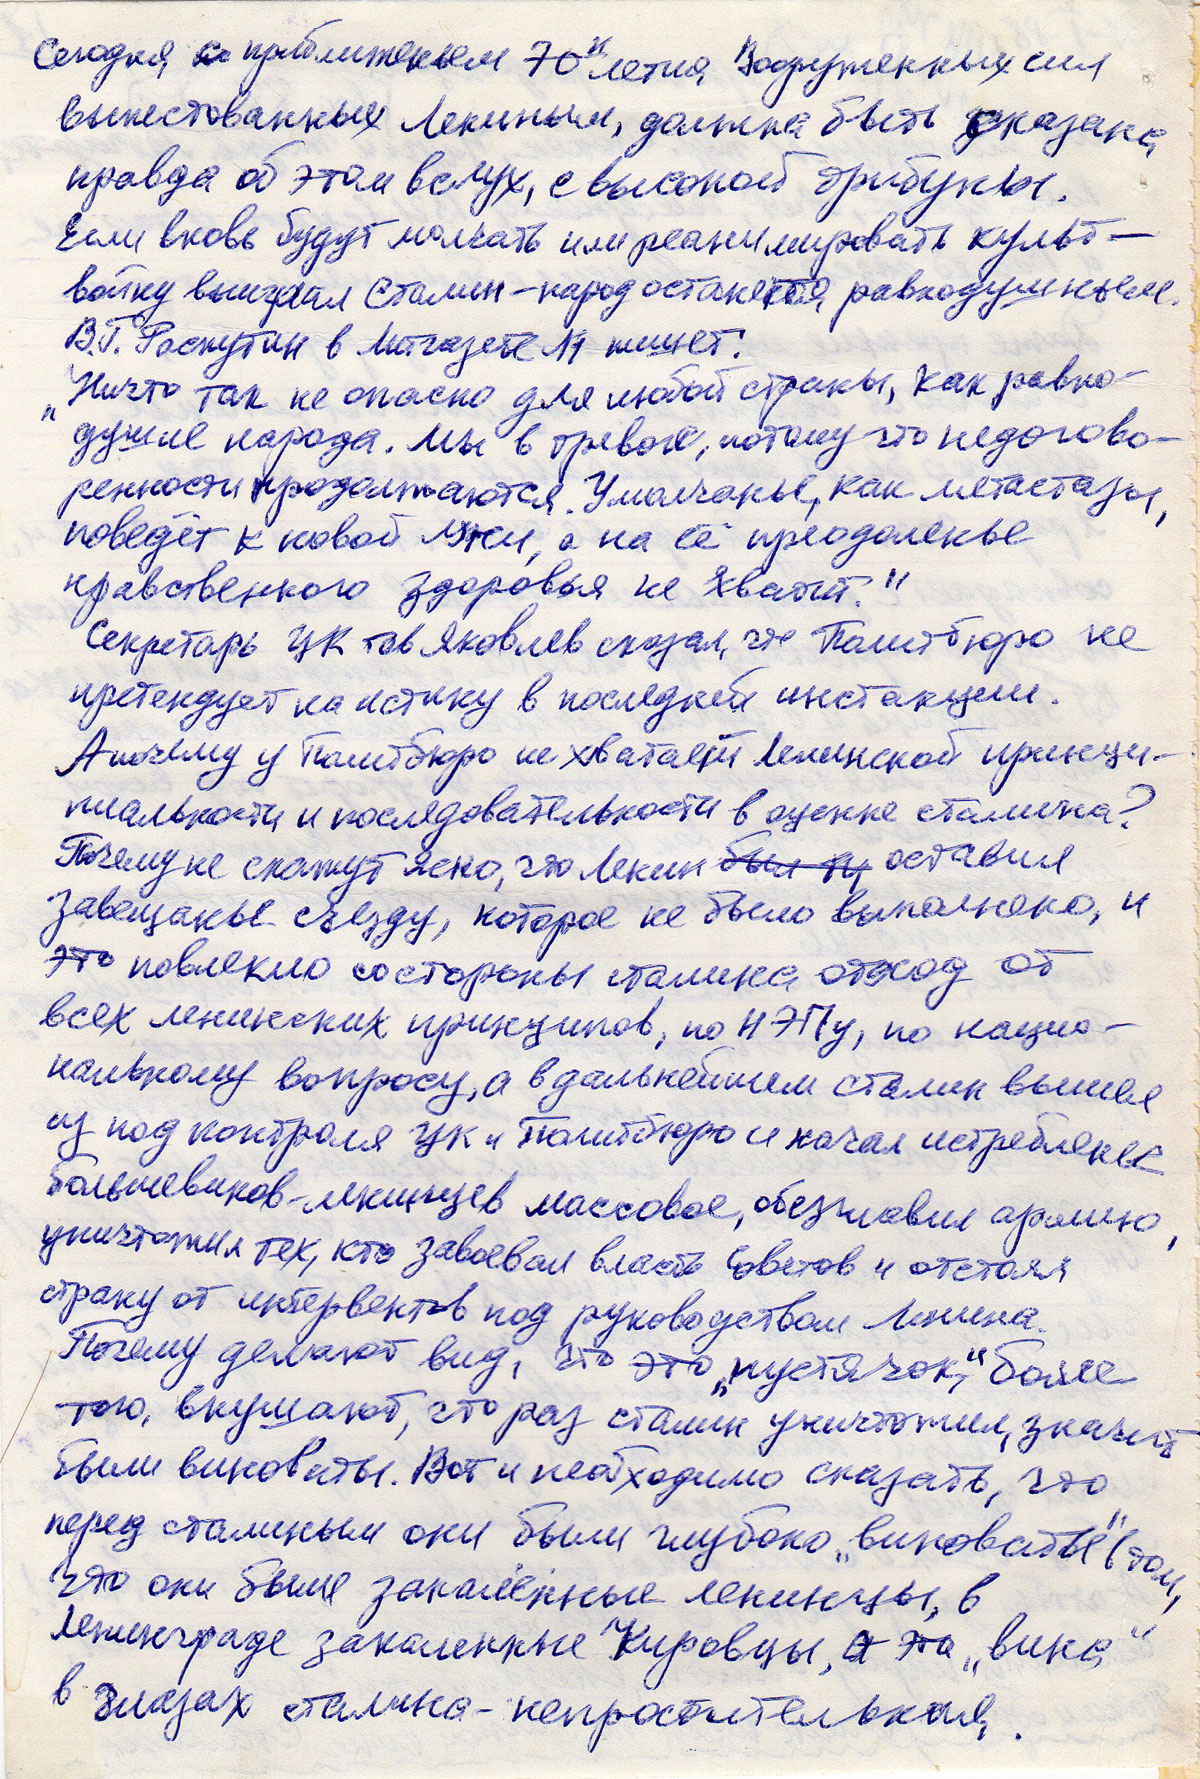 Сегодня, с приближеньем 70"летия Вооруженных сил
выпестованных Лениным, должна быть сказана
правда об этом вслух, с высокой трибуны.
Если вновь будут молчать или реанимировать культ —
войну выиграл Сталин – народ останется равнодушным.
В.Г. Распутин в Литгазете №1 пишет:
„Ничто так не опасно для любой страны, как равно-
душие народа. Мы в тревоге, потому что недогово-
ренности продолжаются. Умолчанье, как метастазы,
поведёт к новой лжи, а на её преодоленье
нравственного здоровья не хватит."
Секретарь ЦК тов Яковлев сказал, что Политбюро не
претендует на истину в последней инстанции.
А почему у Политбюро не хватает Ленинской принци-
пиальности и последовательности в оценке сталина?
Почему не скажут ясно, что Ленин оставил
завещанье съезду, которое не было выполнено, и
это повлекло со стороны сталина отход от
всех ленинских принципов, по НЭПу, по нацио-
нальному вопросу, а в дальнейшем сталин вышел
из под контроля ЦК и Политбюро и начал истребленье
большевиков-ленинцев массовое, обезглавил армию,
уничтожил тех, кто завоевал власть Советов и отстоял
страну от интервентов под руководством Ленина.
Почему делают вид, что это „пустячок," более
того, внушают, что раз сталин уничтожил, значит
были виноваты. Вот и необходимо сказать, что
перед сталиным они были глубоко „виноваты" в том,
что они были закалённые ленинцы, в
Ленинграде закаленные Кировцы, а эта „вина"
в глазах сталина – непростительная.